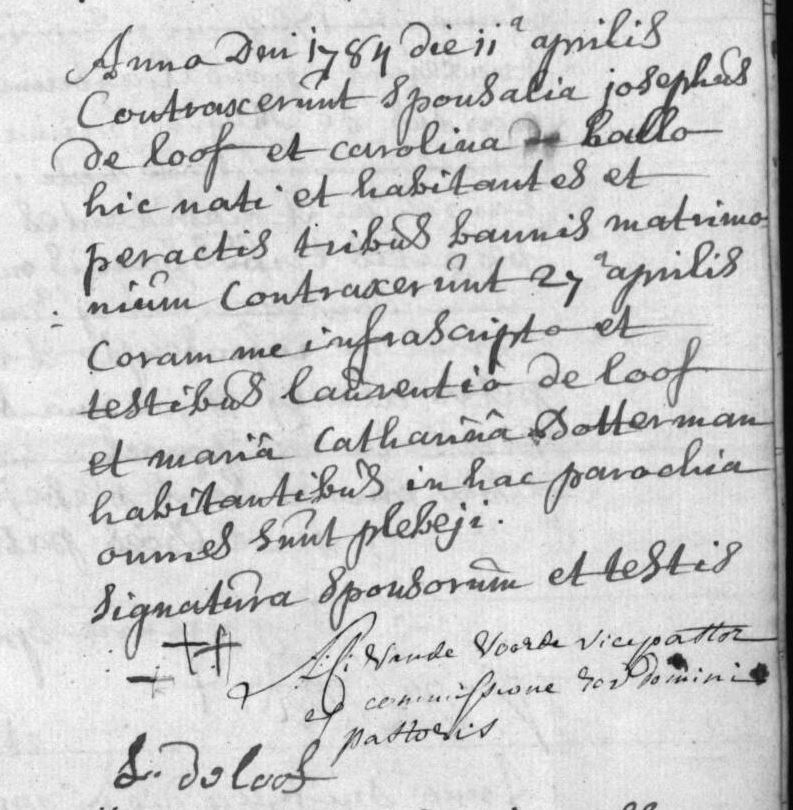 Anno Dni 1784 die 11ª aprilis
Contraxerunt sponsalia josephus
de loof et carolina de hallo
hic nati et habitantes et
peractis tribus bannis matrimo
:nium Contraxerunt 27ª aprilis
Coram me infrascripto et
testibus laurentio de loof
et mariâ Catharinâ Dotterman
habitantibus in hac parochia
omnes sunt plebeji.
signatura sponsorum et testis
vande Voorde vice pastor
ex commissione rdi Domini
pastoris
L. de loof